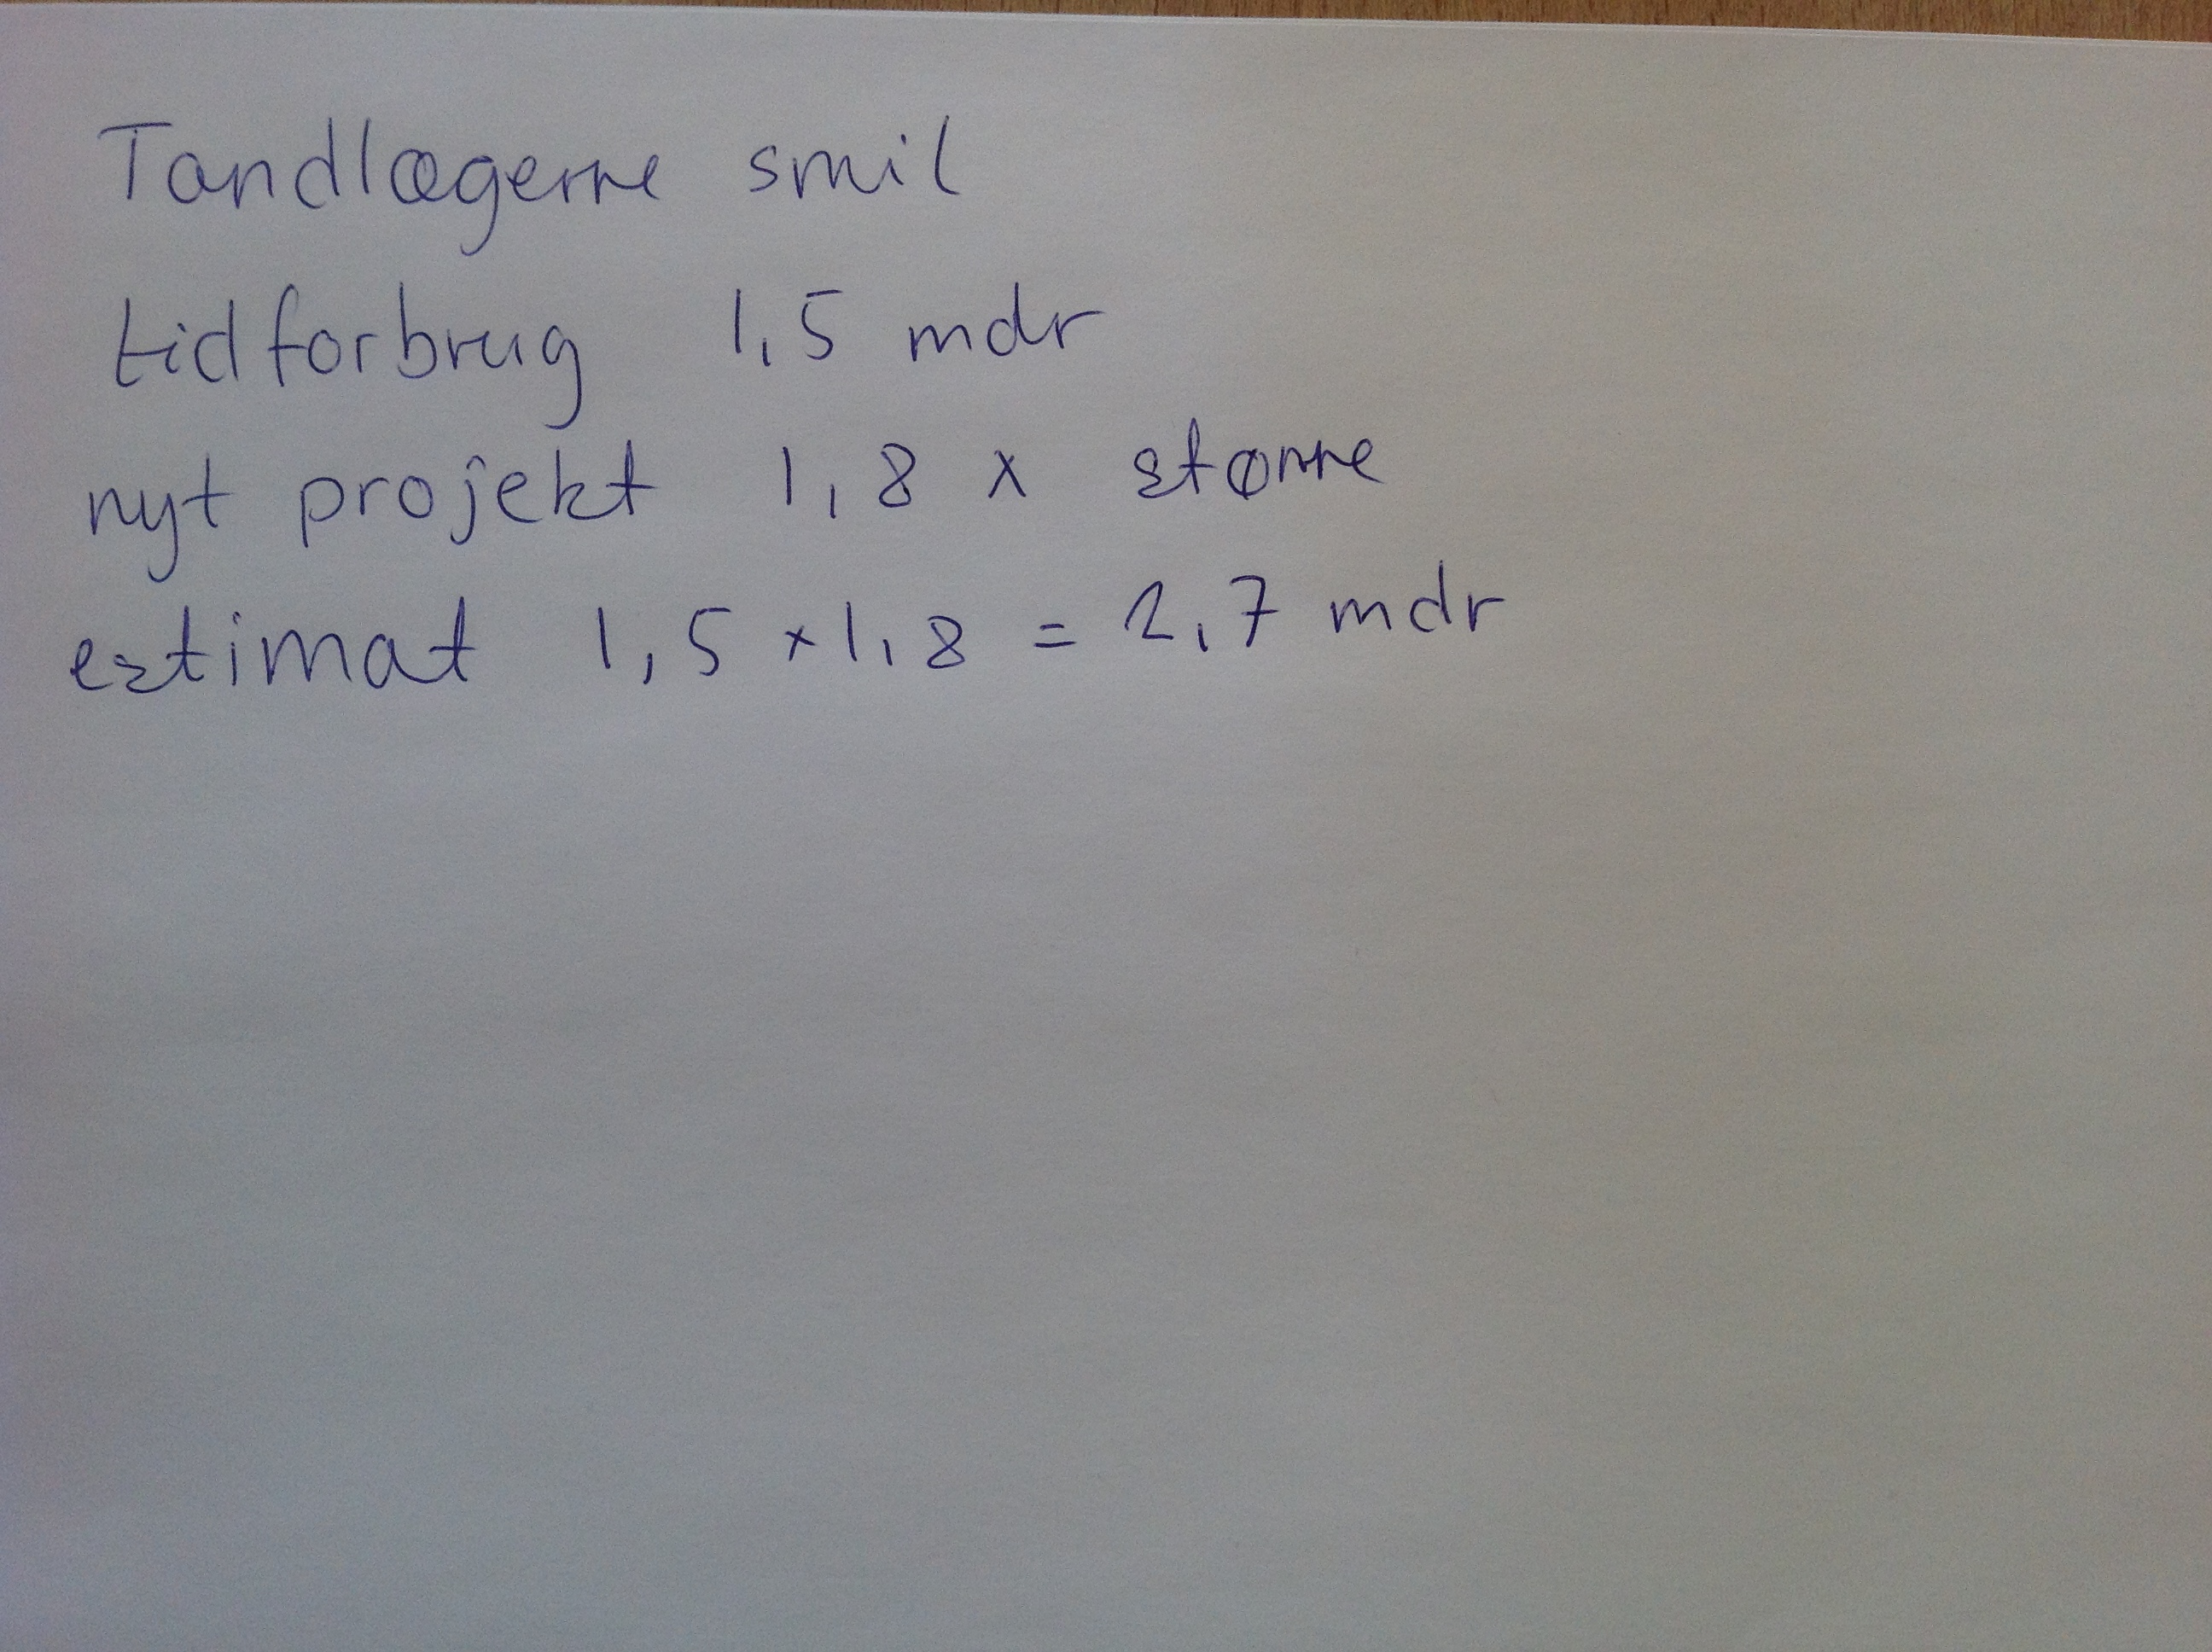 Tandlægerne smil
tidforbrug 1,5 mdr
nyt projekt 1,8 x større
estimat 1,5 x 1,8 = 2,7 mdr